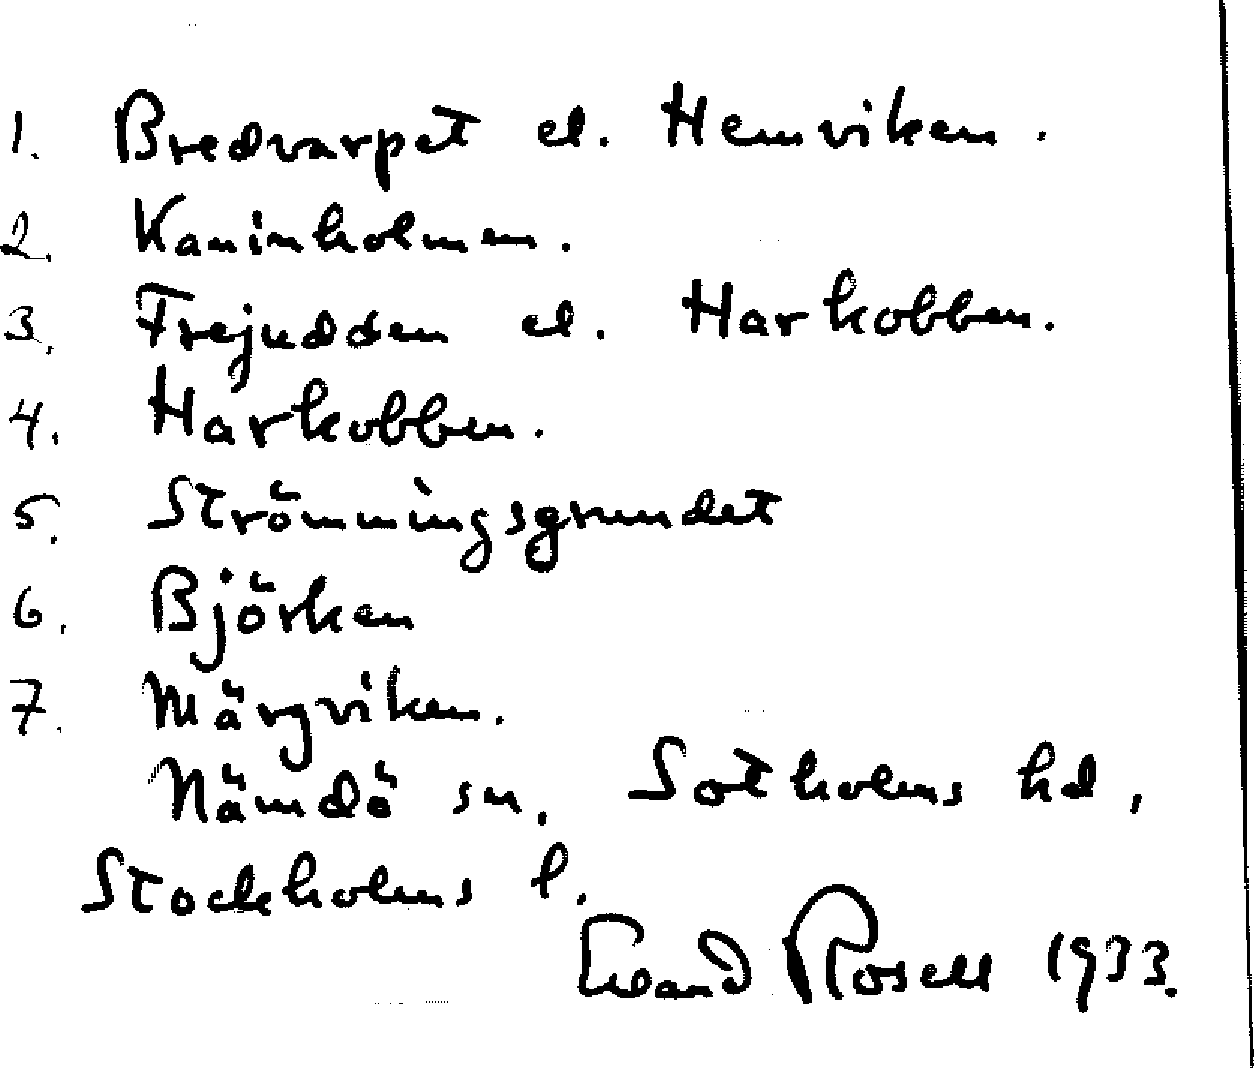 1. Bredvarpet el. Hemviken.
2. Kaninholmen.
3. Frejudden el. Harkobben.
4. Harkobben.
5. Strömmingsgrundet
6. Björken
7. Märgviken.
Nämdö sn. Sotholms hd,
Stockholms l.
Rosell 1933.